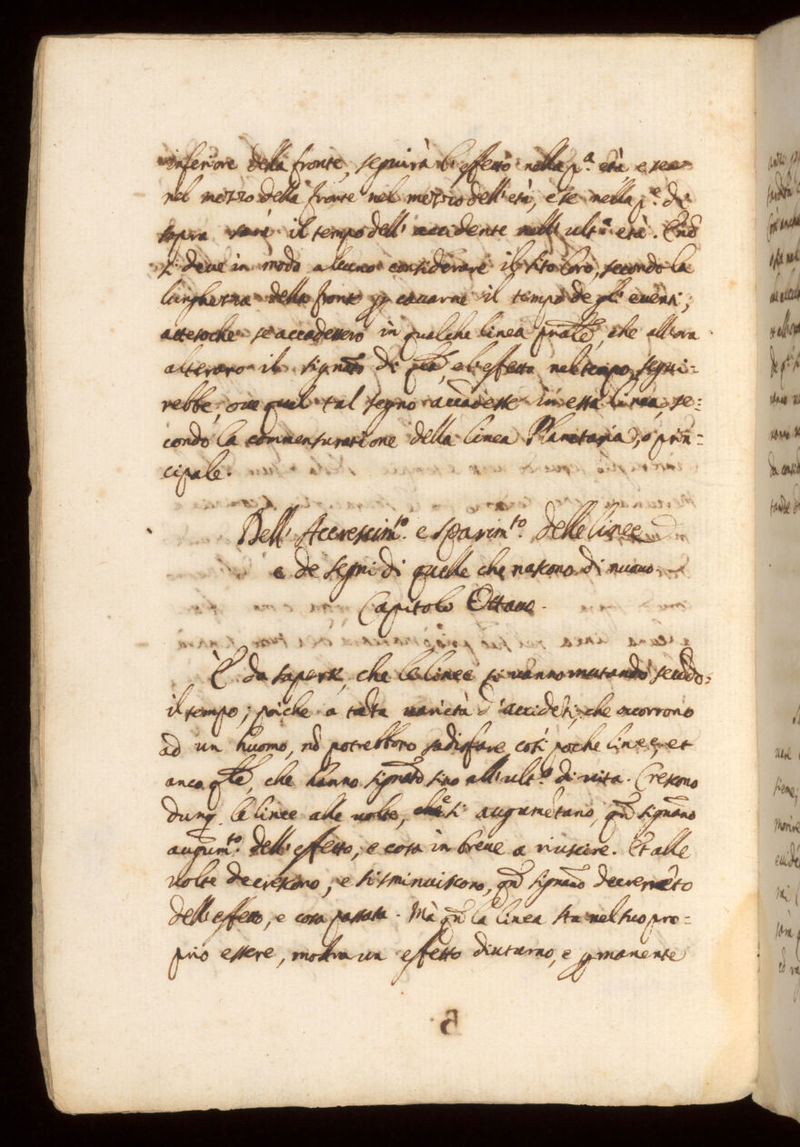 inferiore della fronte, seguirà l'effetto nella p.ª età e se a
nel mezzo della fronte nel mezzo dell'età, e se nella p.ᵉ di
sopra sarà il tempo dell'accidente nell'ult.ª età. E nõ
si deve in modo alcuno considerare il sito loro, secondo la
lunghezza della fronte per cavarne il tempo de gl'eventi;
attesoche se accadessero in qualche linea prãle, che all'ora
alteraro il signãto di, e l'effetto nel tempo segui-
rebbe, ove quel tal segno accadesse in essa linea, se:
condo la commensuratione della linea Planetaria, ò prin=
cipale.
Dell'Accrescim.ᵗᵒ e sparim.ᵗᵒ delle linee
e de segni di quelle che nascono di nuovo
Capitolo Ottavo.
È da sapersi, che le linee si vanno mutando secõdo
il tempo; poiche a tãta varietà d'accidẽti, che occorrono
ad un huomo, nõ potrebbero sadisfare così poche linee, et
anco q̃lle, che hanno signãto sino all'ult.º di vita. Crescono
dunq. le linee alle volte, che si augumẽtano, qñ signãno
augum.ᵗᵒ dell'effetto, e cosa in breve a riuscire. Et alle
volte decrescono, e si sminuiscono, qñ signãno decremẽto
dell'effetto, e cosa passata. Mà qñ la linea sta nel suo pro=
prio essere, mostra un effetto diuturno, e permanente
5